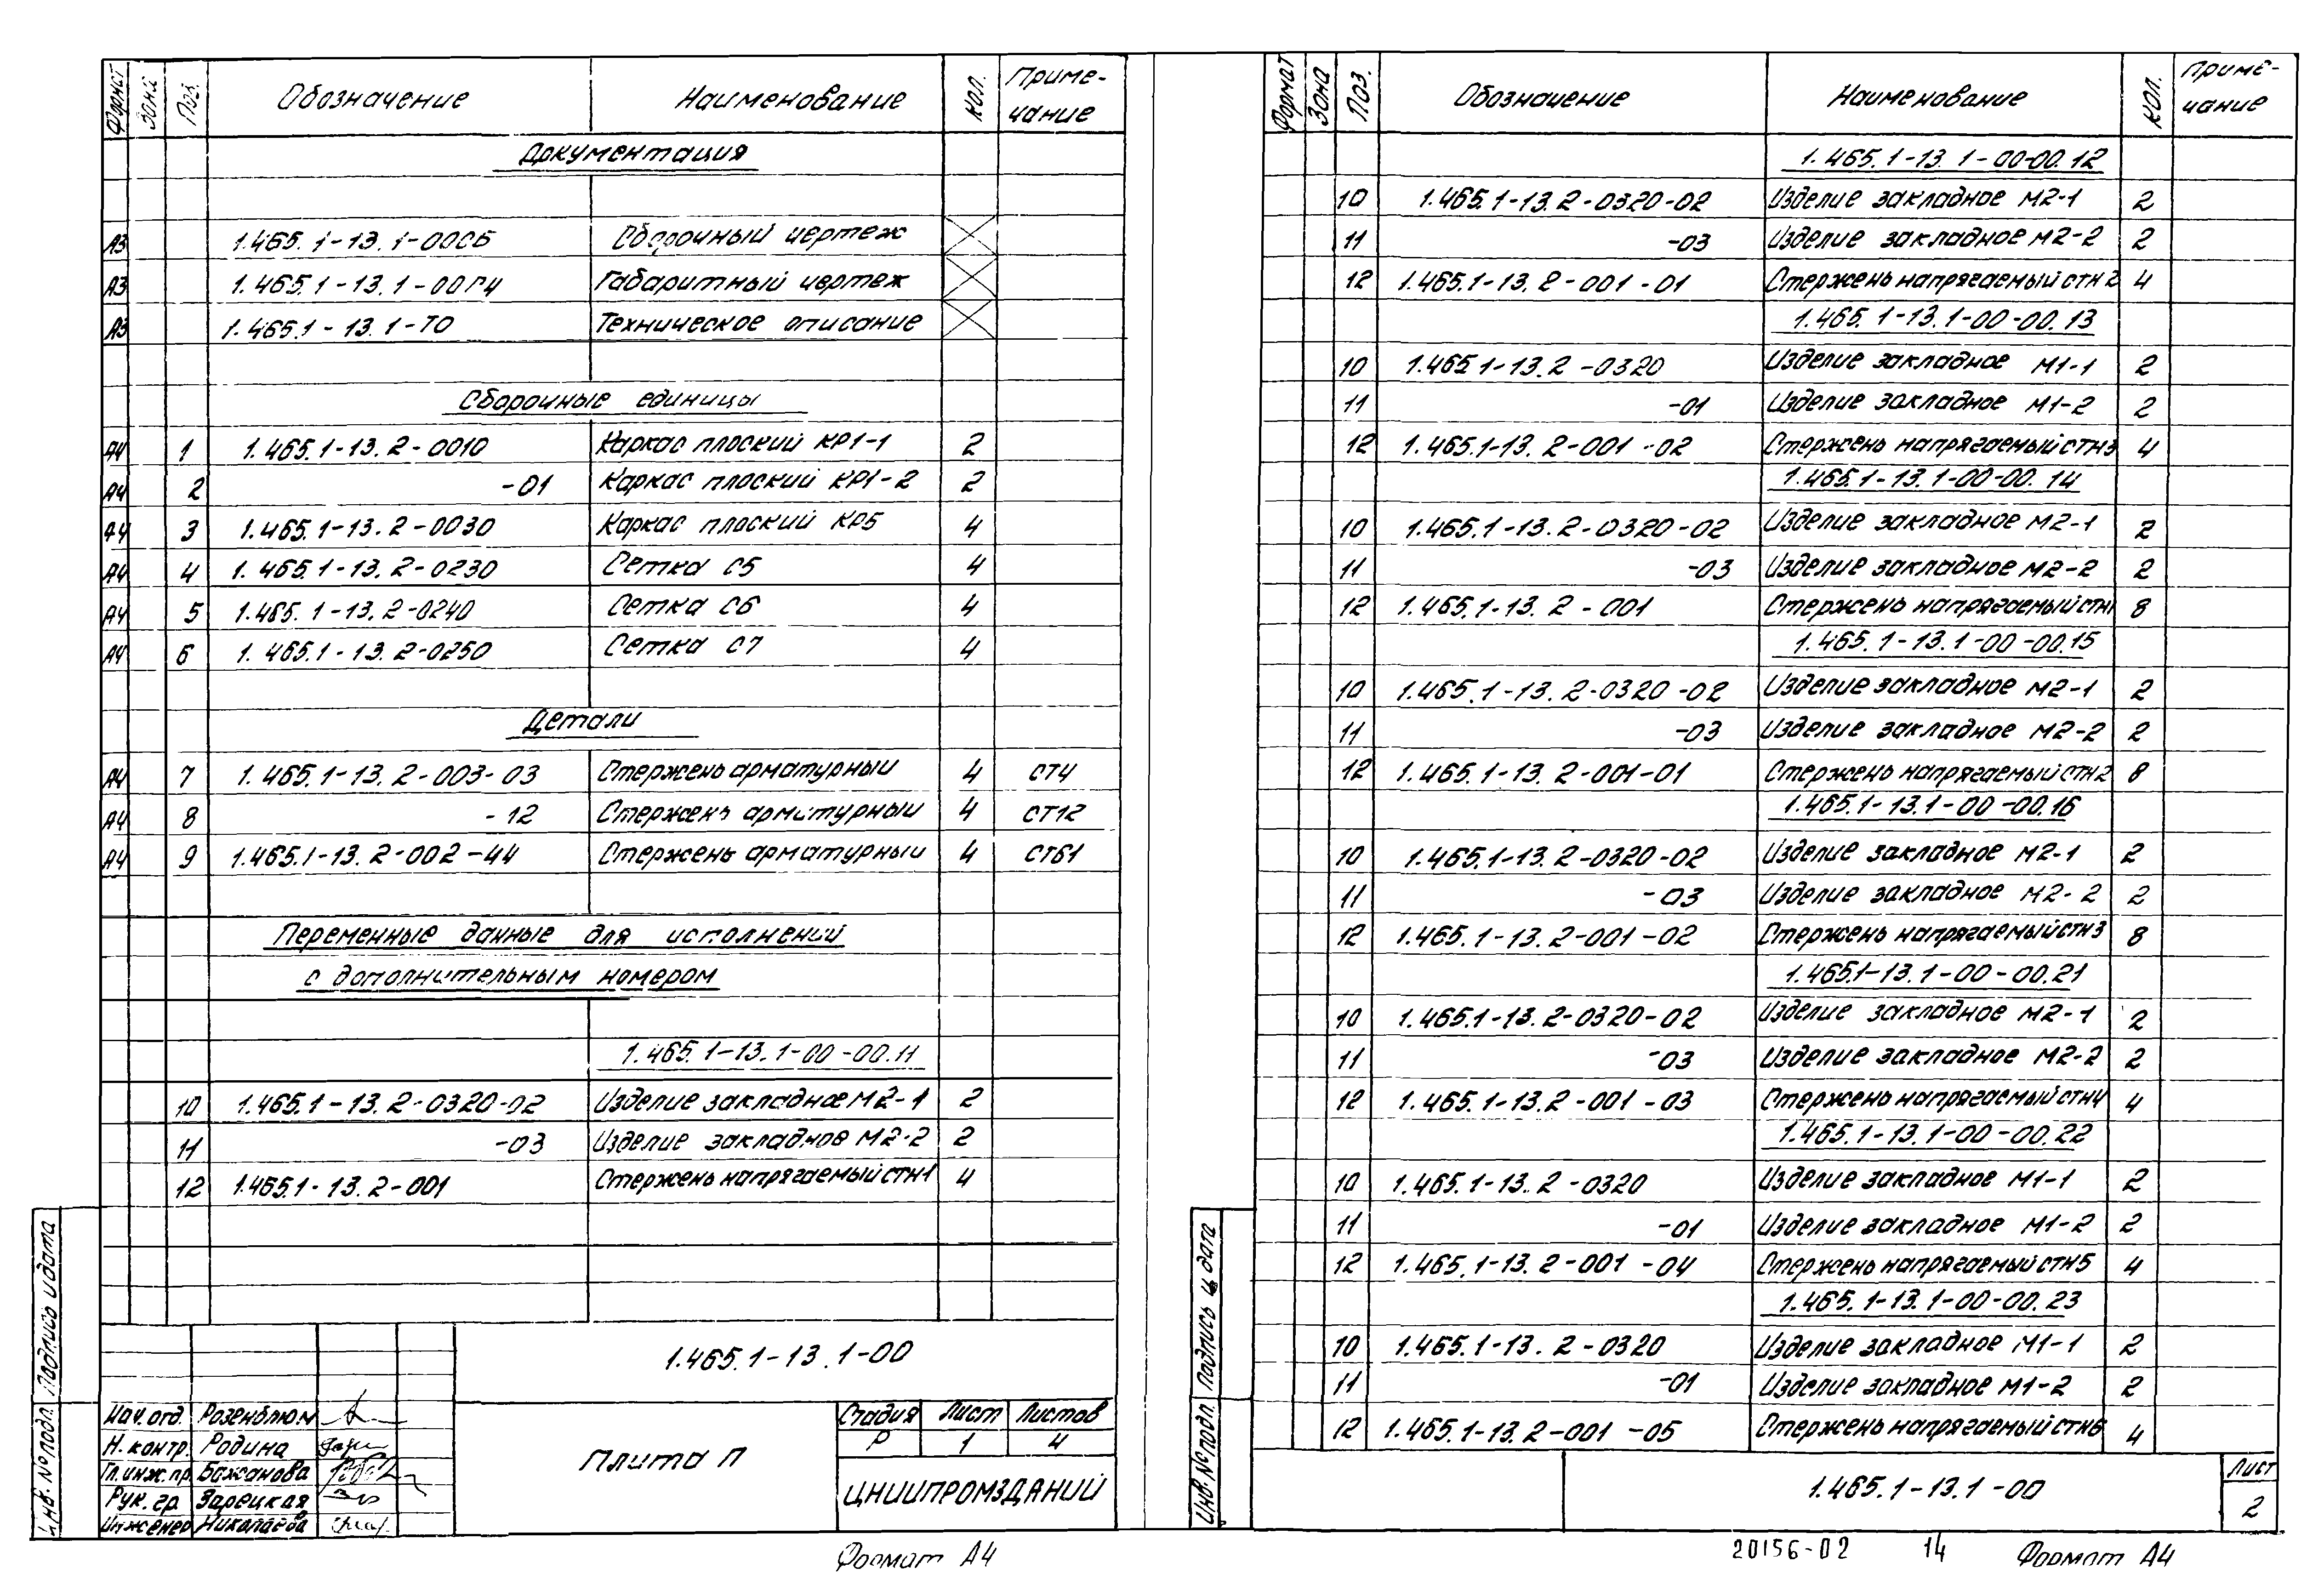 Формат Зона Поз. Обозначение Наименование Кол. Приме-
чание
Документация
А3 1.465.1-13.1-00СБ Сборочный чертеж
А3 1.465.1-13.1-00ГЧ Габаритный чертеж
А3 1.465.1-13.1-ТО Техническое описание
Сборочные единицы
А4 1 1.465.1-13.2-0010 Каркас плоский КР1-1 2
А4 2 -01 Каркас плоский КР1-2 2
А4 3 1.465.1-13.2-0030 Каркас плоский КР5 4
А4 4 1.465.1-13.2-0230 Сетка С5 4
А4 5 1.465.1-13.2-0240 Сетка С6 4
А4 6 1.465.1-13.2-0250 Сетка С7 4
Детали
А4 7 1.465.1-13.2-003-03 Стержень арматурный 4 СТ4
А4 8 -12 Стержень арматурный 4 СТ12
А4 9 1.465.1-13.2-002-44 Стержень арматурный 4 СТ61
Переменные данные для исполнений
с дополнительным номером
1.465.1-13.1-00-00.11
10 1.465.1-13.2-0320-02 Изделие закладное М2-1 2
11 -03 Изделие закладное М2-2 2
12 1.465.1-13.2-001 Стержень напрягаемый СТН1 4
1.465.1-13.1-00
Нач. отд. Розенблюм
Н. контр. Родина
Гл. инж. пр. Бажанова
Рук. гр. Зарецкая
Инженер Николаева
Плита П
Стадия Лист Листов
Р 1 4
ЦНИИПРОМЗДАНИЙ
Инв. № подл. Подпись и дата
Формат А4
Формат Зона Поз. Обозначение Наименование Кол. Приме-
чание
1.465.1-13.1-00-00.12
10 1.465.1-13.2-0320-02 Изделие закладное М2-1 2
11 -03 Изделие закладное М2-2 2
12 1.465.1-13.2-001-01 Стержень напрягаемый СТН2 4
1.465.1-13.1-00-00.13
10 1.465.1-13.2-0320 Изделие закладное М1-1 2
11 -01 Изделие закладное М1-2 2
12 1.465.1-13.2-001-02 Стержень напрягаемый СТН3 4
1.465.1-13.1-00-00.14
10 1.465.1-13.2-0320-02 Изделие закладное М2-1 2
11 -03 Изделие закладное М2-2 2
12 1.465.1-13.2-001 Стержень напрягаемый СТН1 8
1.465.1-13.1-00-00.15
10 1.465.1-13.2-0320-02 Изделие закладное М2-1 2
11 -03 Изделие закладное М2-2 2
12 1.465.1-13.2-001-01 Стержень напрягаемый СТН2 8
1.465.1-13.1-00-00.16
10 1.465.1-13.2-0320-02 Изделие закладное М2-1 2
11 -03 Изделие закладное М2-2 2
12 1.465.1-13.2-001-02 Стержень напрягаемый СТН3 8
1.465.1-13.1-00-00.21
10 1.465.1-13.2-0320-02 Изделие закладное М2-1 2
11 -03 Изделие закладное М2-2 2
12 1.465.1-13.2-001-03 Стержень напрягаемый СТН4 4
1.465.1-13.1-00-00.22
10 1.465.1-13.2-0320 Изделие закладное М1-1 2
11 -01 Изделие закладное М1-2 2
12 1.465.1-13.2-001-04 Стержень напрягаемый СТН5 4
1.465.1-13.1-00-00.23
10 1.465.1-13.2-0320 Изделие закладное М1-1 2
11 -01 Изделие закладное М1-2 2
12 1.465.1-13.2-001-05 Стержень напрягаемый СТН6 4
Инв. № подл. Подпись и дата
1.465.1-13.1-00
Лист
2
20156-02 14 Формат А4